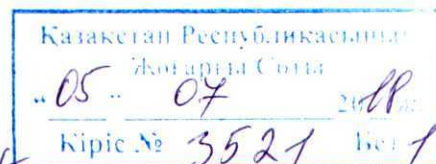 Қазақстан Республикасының
Жоғарғы Соты
"05" 07 2018
Кіріс № 3521 Бет 1